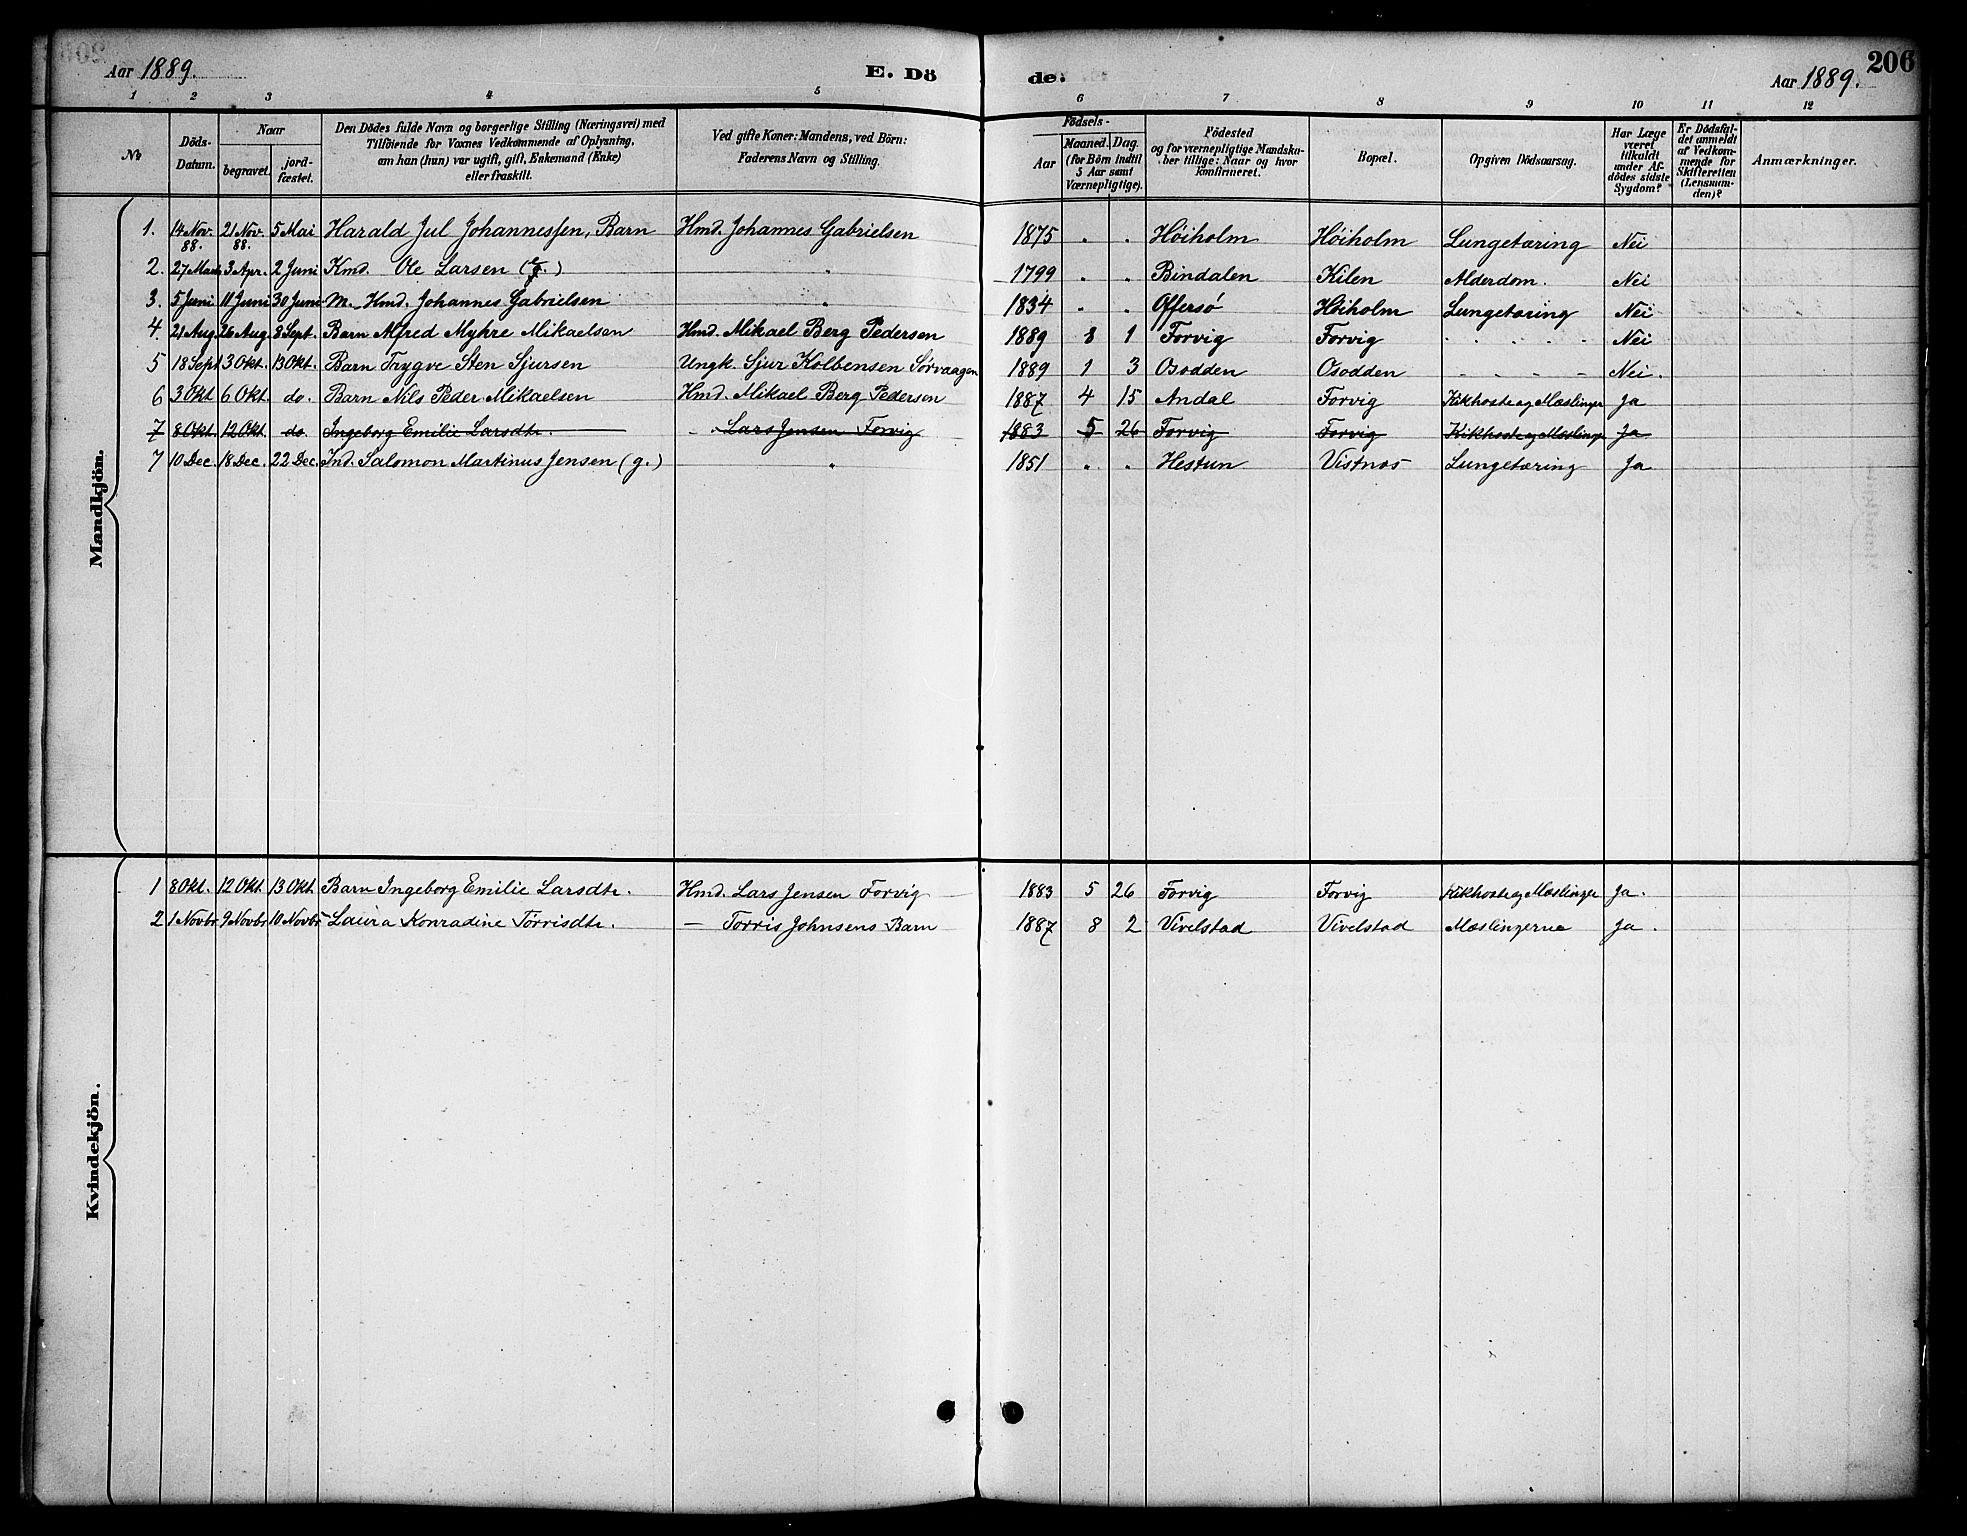 Aar 1889. E. Dö de. Aar 1889. 206
1 2 3 4 5 6 7 8 9 10 11 12
No
Döds-Datum.
Naar
begravet.
jord-fæstet.
Den Dödes fulde Navn og borgerlige Stilling (Næringsvei) med
Tilföiende for Voxnes Vedkommende af Oplysning,
om han (hun) var ugift, gift, Enkemand (Enke)
eller fraskilt.
Ved gifte Koner: Mandens, ved Börn:
Faderens Navn og Stilling.
Födsels-
Aar
Maaned. Dag.
(for Börn indtil
5 Aar samt
Værnepligtige).
Födested
og for værnepligtige Mandska-
ber tillige: Naar og hvor
konfirmeret.
Bopæl.
Opgiven Dödsaarsag.
Har Læge
været
tilkaldt
under Af-
dödes sidste
Sygdom?
Er Dödsfal-
det anmeldt
af Vedkom-
mende for
Skifteretten
(Lensman-
den)?
Anmærkninger.
Mandkjön.
1. 14 Nov. 88. 21 Nov. 88. 5 Mai Harald Jul Johannessen, Barn Hmd. Johannes Gabrielsen 1875 " " Høiholm Høiholm Lungetæring Nei
2. 27 Mars 3 Apr. 2 Juni Kmd. Ole Larsen " 1799 " " Bindalen Kilen Alderdom. Nei
3. 5 Juni 11 Juni 30 Juni M. Hmd. Johannes Gabrielsen " 1834 " " Offersø Høiholm Lungetæring Nei
4. 21 Aug. 26 Aug. 8 Sept. Barn Alfred Myhre Mikaelsen Hmd. Mikael Berg Pedersen 1889 8 1 Forvig Forvig - - - - - Nei
5 18 Sept 3 Okt. 13 Okt. Barn Trygve Sten Sjursen Ungk. Sjur Kolbensen Sørvaagen 1889 1 3 Osodden Osodden - - - - - Nei.
6 3 Okt 6 Okt. do. Barn Nils Peder Mikaelsen Hmd. Mikael Berg Pedersen 1887 4 15 Andal Forvig Kikhoste og Mæslinger Ja
7 8 Okt. 12 Okt. do Ingeborg Emilie Larsdtr. - Lars Jensen Forvig 1883 5 26 Forvig Forvig Kikhoste og Mæslinger Ja
7 10 Dec. 18 Dec. 22 Dec. Ind. Salomon Martinus Jensen (g.) " 1851 " " Hestun Vistnæs Lungetæring Ja
Kvindekjön.
1 8 Okt. 12 Okt. 13 Okt. Barn Ingeborg Emilie Larsdtr. Hmd. Lars Jensen Forvig 1883 5 26 Forvig Forvig Kikhoste og Mæslinger Ja.
2 1 Novbr 9 Novbr 10 Novbr Laura Konradine Torrisdtr. - Torris Johnsens Barn 1887 8 2 Vivelstad Vivelstad Mæslingerne Ja.